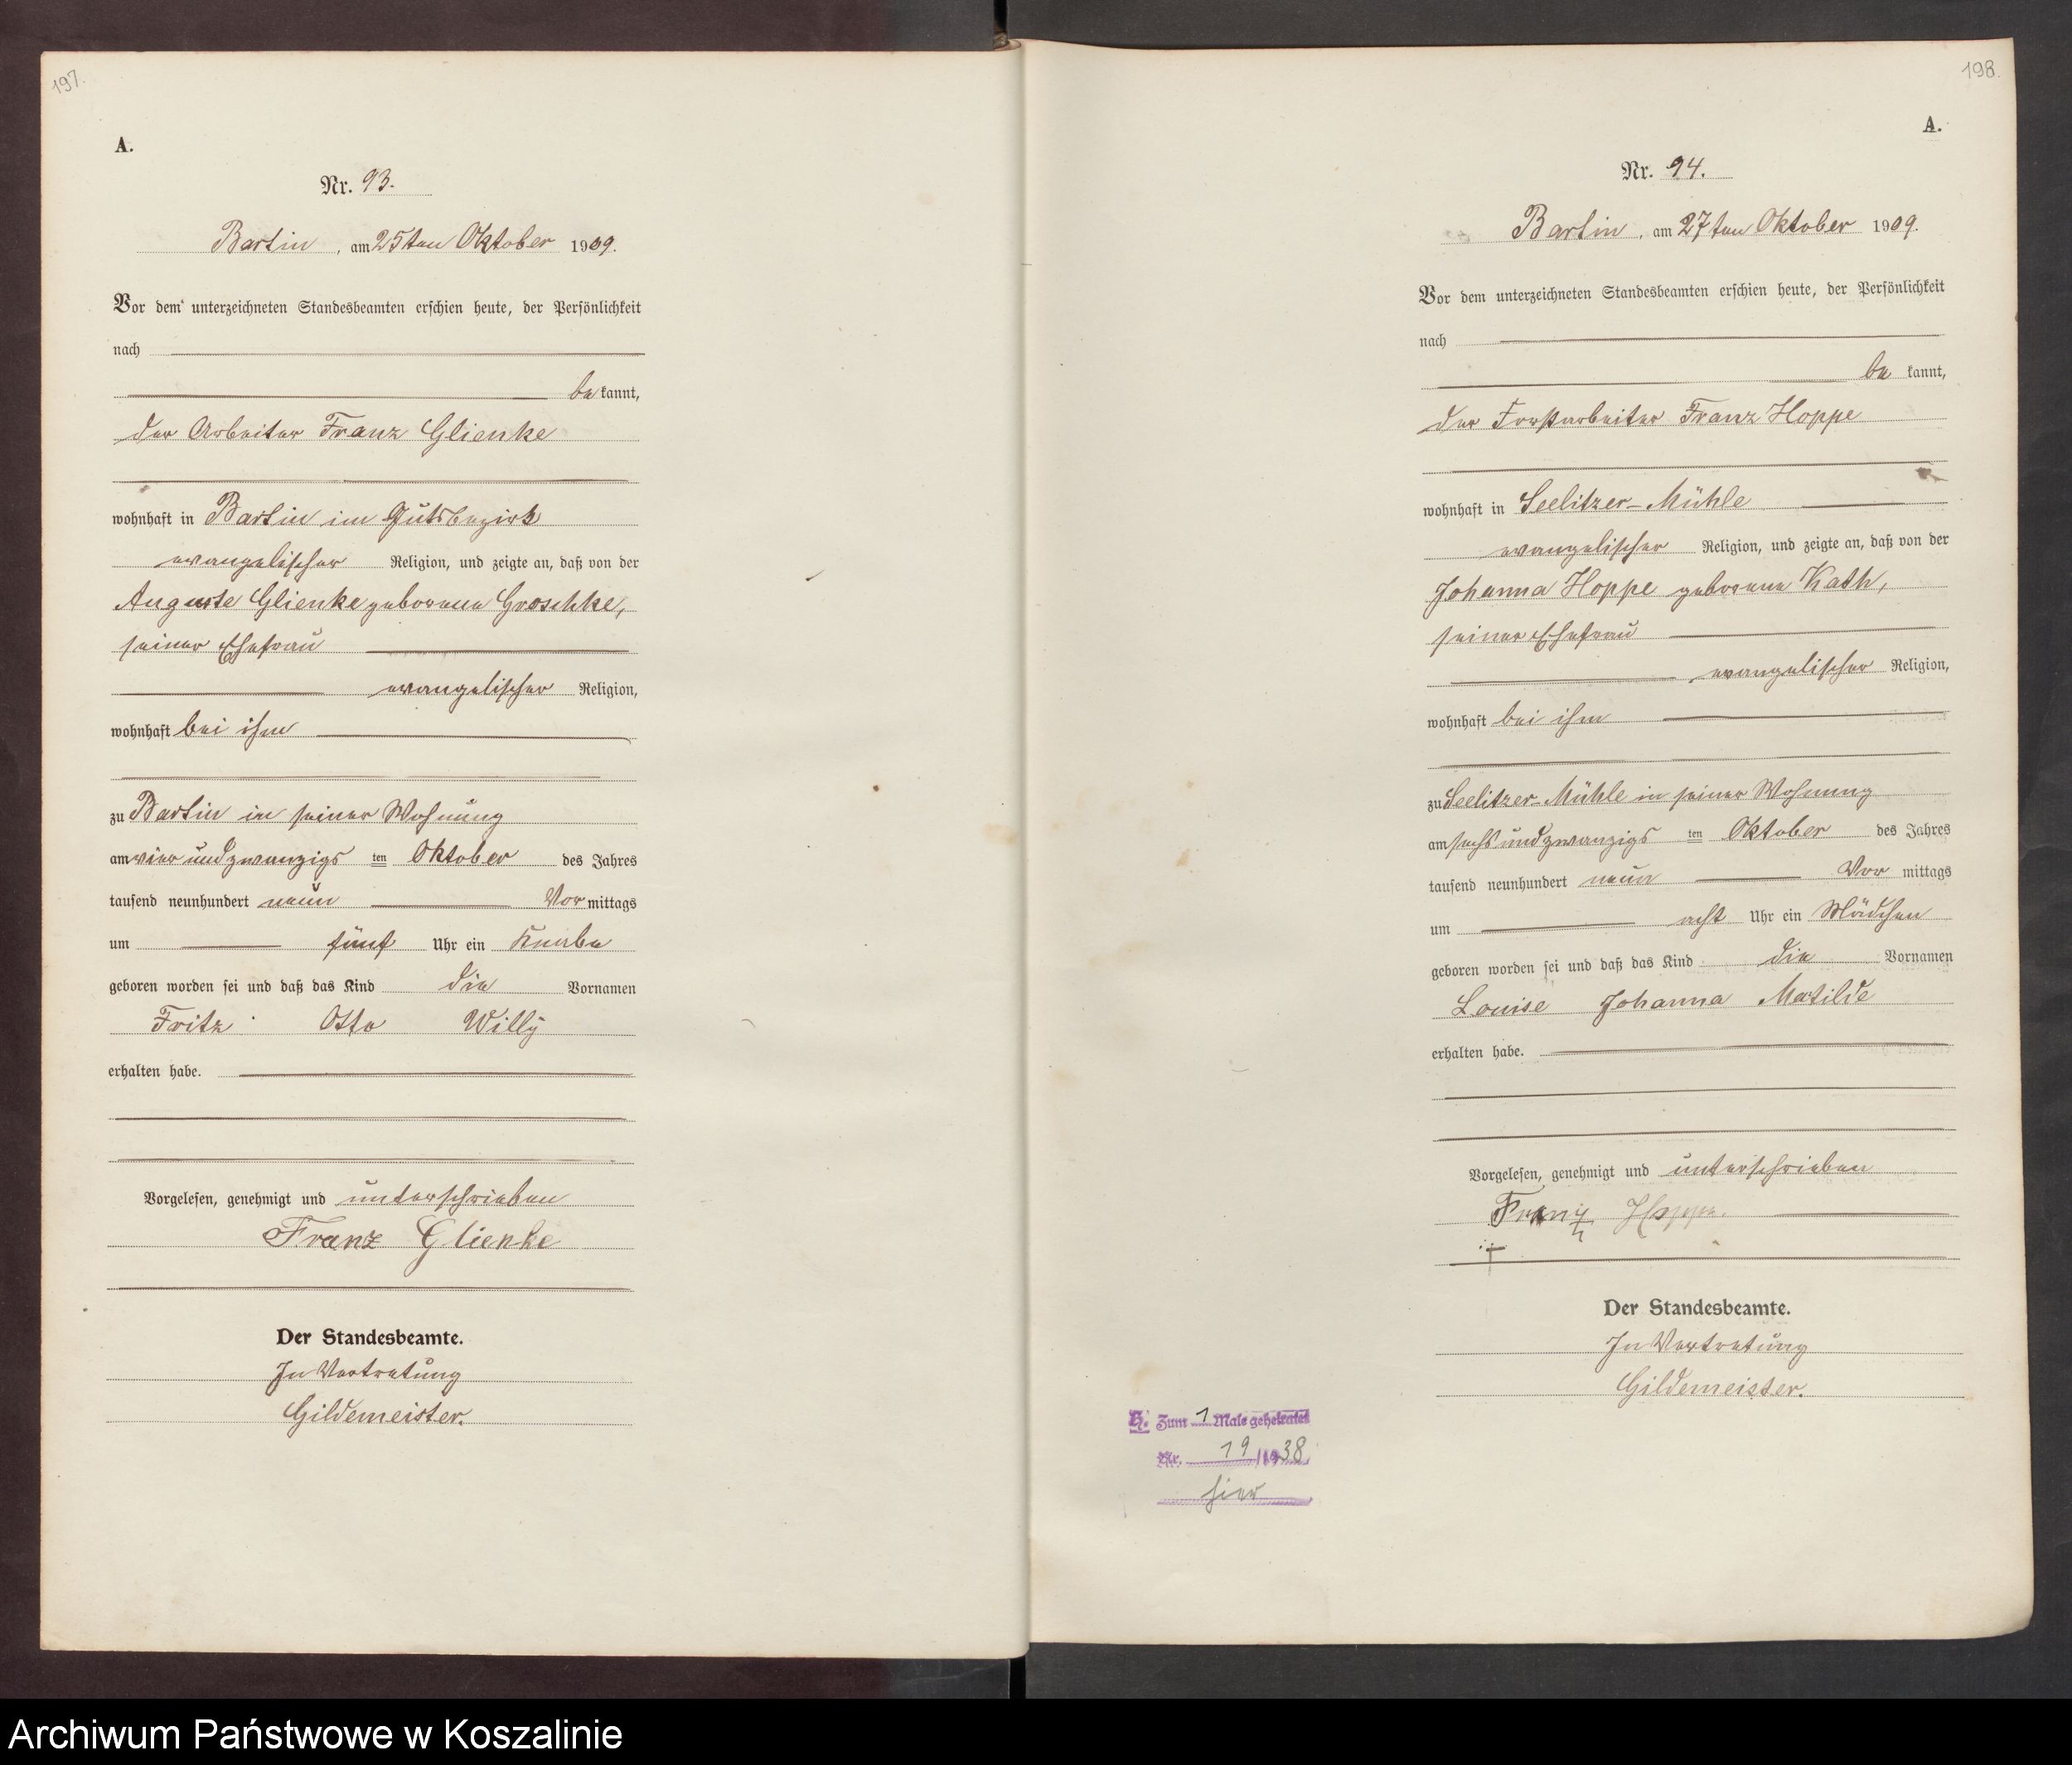 197.
A.
Nr. 93.
Bartin, am 25ten Oktober 1909.
Vor dem unterzeichneten Standesbeamten erschien heute, der Persönlichkeit
nach
be kannt,
der Arbeiter Franz Glienke
wohnhaft in Bartin im Gutsbezirk
evangelischer Religion, und zeigte an, daß von der
Auguste Glienke geborene Groschke,
seiner Ehefrau
evangelischer Religion,
wohnhaft bei ihm
zu Bartin in seiner Wohnung
am vier und zwanzigs ten Oktober des Jahres
tausend neunhundert neun Vor mittags
um fünf Uhr ein Knabe
geboren worden sei und daß das Kind die Vornamen
Fritz Otto Willy
erhalten habe.
Vorgelesen, genehmigt und unterschrieben
Franz Glienke
Der Standesbeamte.
In Vertretung
Gildemeister.
198.
A.
Nr. 94.
Bartin, am 27ten Oktober 1909.
Vor dem unterzeichneten Standesbeamten erschien heute, der Persönlichkeit
nach
be kannt,
der Forstarbeiter Franz Hoppe
wohnhaft in Seelitzer-Mühle
evangelischer Religion, und zeigte an, daß von der
Johanna Hoppe geborene Kath,
seiner Ehefrau
evangelischer Religion,
wohnhaft bei ihm
zu Seelitzer-Mühle in seiner Wohnung
am sechs und zwanzigs ten Oktober des Jahres
tausend neunhundert neun Vor mittags
um acht Uhr ein Mädchen
geboren worden sei und daß das Kind die Vornamen
Louise Johanna Matilde
erhalten habe.
Vorgelesen, genehmigt und unterschrieben
Franz Hoppe.
Der Standesbeamte.
In Vertretung
Gildemeister.
H. Zum 1 Male geheiratet
Nr. 19/1938
hier
Archiwum Państwowe w Koszalinie